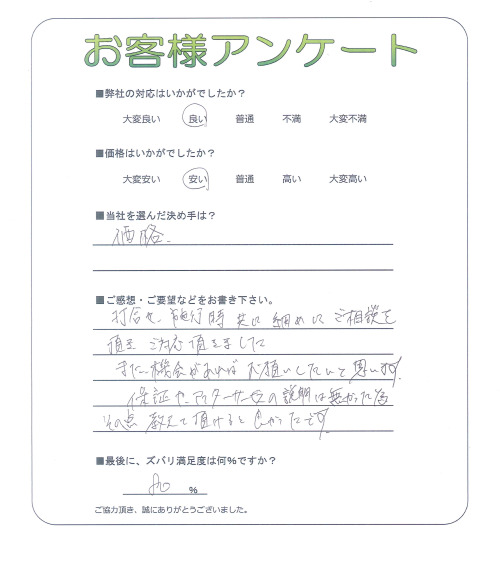 お客様アンケート
■弊社の対応はいかがでしたか?
大変良い 良い 普通 不満 大変不満
■価格はいかがでしたか?
大変安い 安い 普通 高い 大変高い
■当社を選んだ決め手は?
価格.
■ご感想・ご要望などをお書き下さい。
打合せ、施行時 共に 細めに ご相談を
頂き ご対応 頂きました
また、機会があれば お願いしたいと 思います。
保証や、アフターサービスの説明は無かった為
その点 教えて頂けると 良かったです。
■最後に、ズバリ満足度は何%ですか?
80 %
ご協力頂き、誠にありがとうございました。